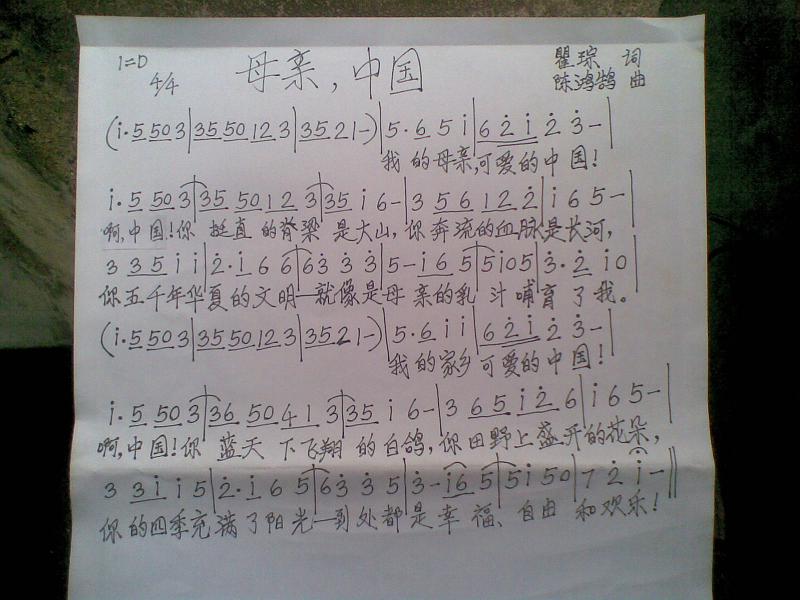 1=D 4/4 母亲,中国 瞿琮 词
陈鸿鹄 曲
(i·5 503|35 50 12 3|35 21-)|5·6 5 i|6 2 i 2 3-|
我的母亲,可爱的中国!
i·5 50 3|35 50 12 3|35 i 6-|3 5 6 1 2 2|i 6 5-|
啊,中国!你挺直的脊梁是大山,你奔流的血脉是长河,
3 3 5 i i|2·i 6 6|6 3 3 3|5-i 6 5|5 i 0 5|3·2 i 0|
你五千年华夏的文明—就像是母亲的乳汁哺育了我。
(i·5 50 3|35 50 12 3|35 2 1-)|5·6 i i|6 2 i 2 3-|
我的家乡可爱的中国!
i·5 50 3|36 50 41 3|35 i 6-|3 6 5 i 2 6|i 6 5-|
啊,中国!你蓝天下飞翔的白鸽,你田野上盛开的花朵,
3 3 i i 5|2·i 6 5|6 3 3 5|3-i 6 5|5 i 50|7 2 i-‖
你的四季充满了阳光—到处都是幸福、自由和欢乐!